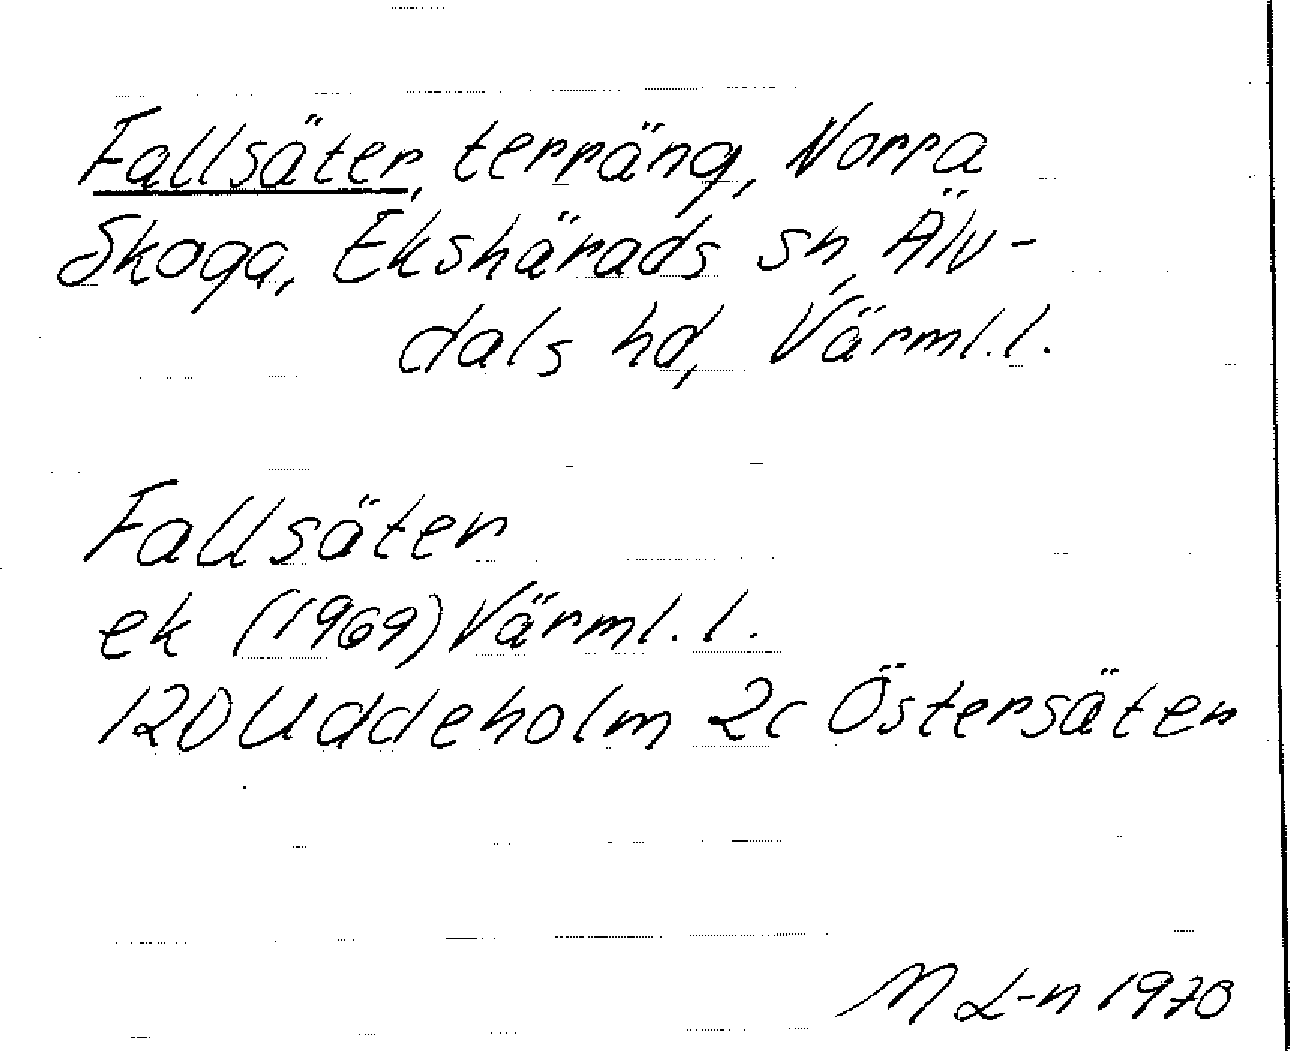 Fallsäter, terräng, Norra
Skoga, Ekshärads sn, Älv-
dals hd, Värml.l.
Fallsäter
ek (1969) Värml.l.
12D Uddeholm 2c Östersäter
M L-n 1970